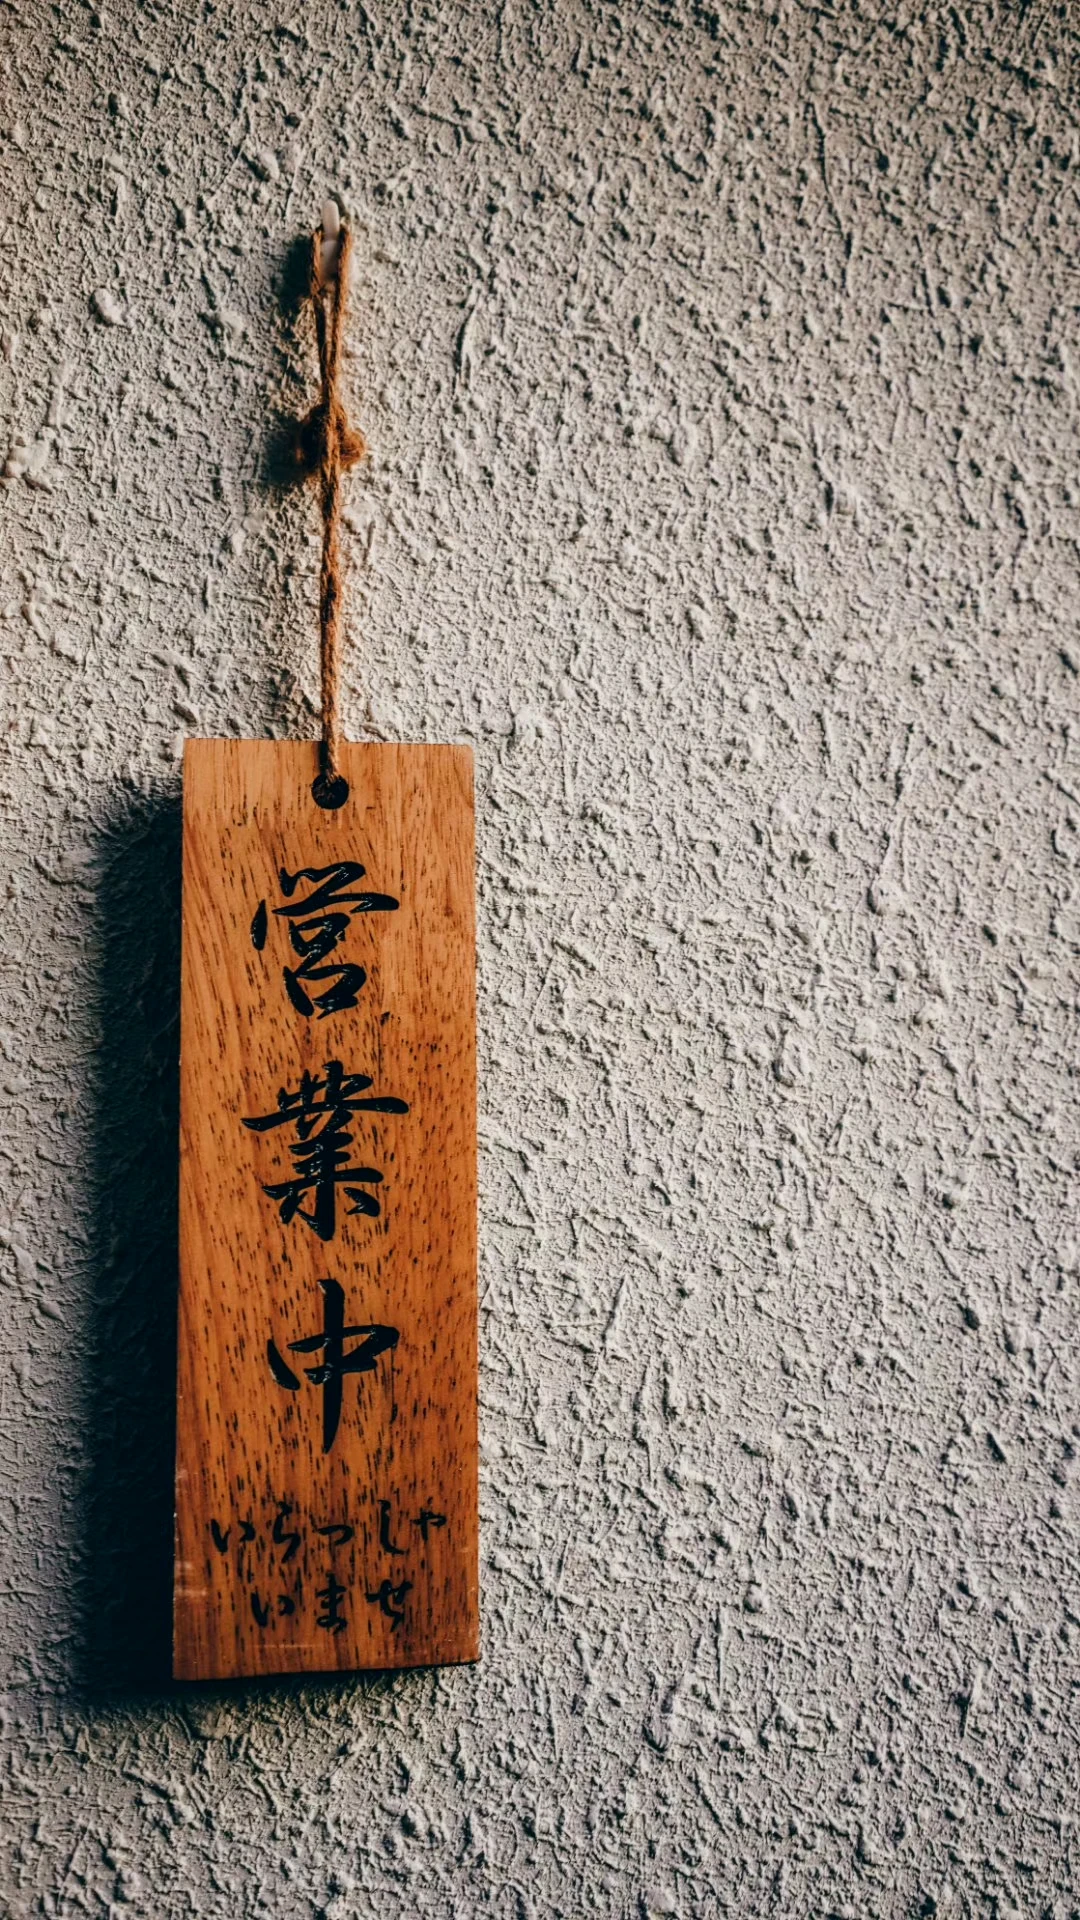 営業中
いらっしゃ
いませ